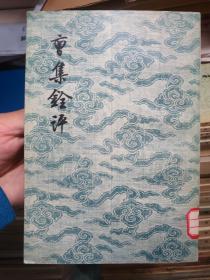 曹集銓評